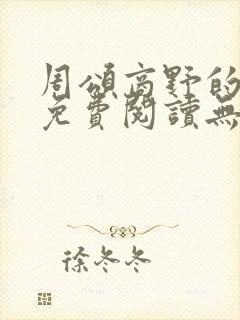 周頌高野的
免費閱讀無
徐冬冬